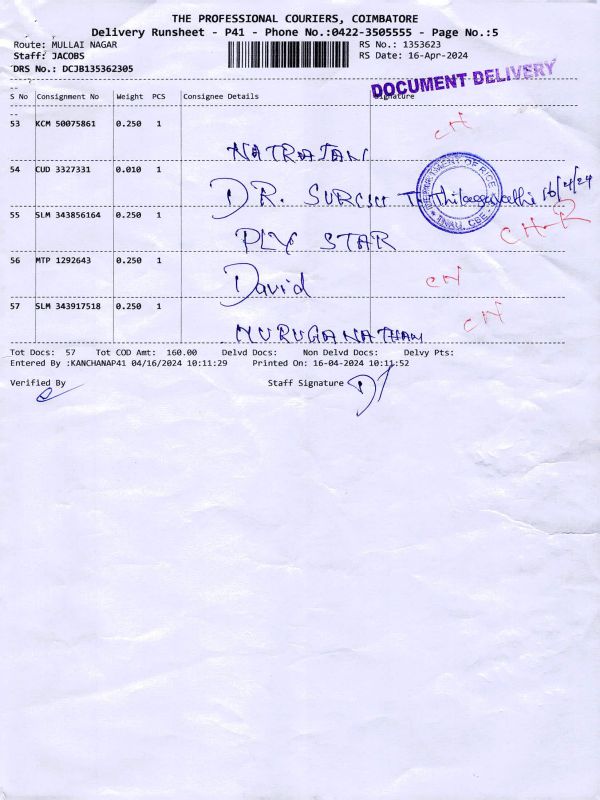 THE PROFESSIONAL COURIERS, COIMBATORE
Delivery Runsheet - P41 - Phone No.:0422-3505555 - Page No.:5
Route: MULLAI NAGAR RS No.: 1353623
Staff: JACOBS RS Date: 16-Apr-2024
DRS No.: DCJB135362305
DOCUMENT DELIVERY
S No Consignment No Weight PCS Consignee Details Signature
53 KCM 50075861 0.250 1 CH
NATRAJAN
54 CUD 3327331 0.010 1
DEPARTMENT OF RICE TNAU, CBE
DR. SURESH T. Thilagavathi 16/4/24
55 SLM 343856164 0.250 1
PLY STAR CH-R
56 MTP 1292643 0.250 1
David CH
57 SLM 343917518 0.250 1
MURUGANATHAN CH
Tot Docs: 57 Tot COD Amt: 160.00 Delvd Docs: Non Delvd Docs: Delvy Pts:
Entered By :KANCHANAP41 04/16/2024 10:11:29 Printed On: 16-04-2024 10:11:52
Verified By Staff Signature